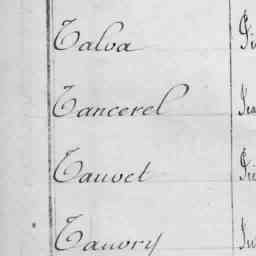 Talva
Tancerel
Tauvet
Tauvry